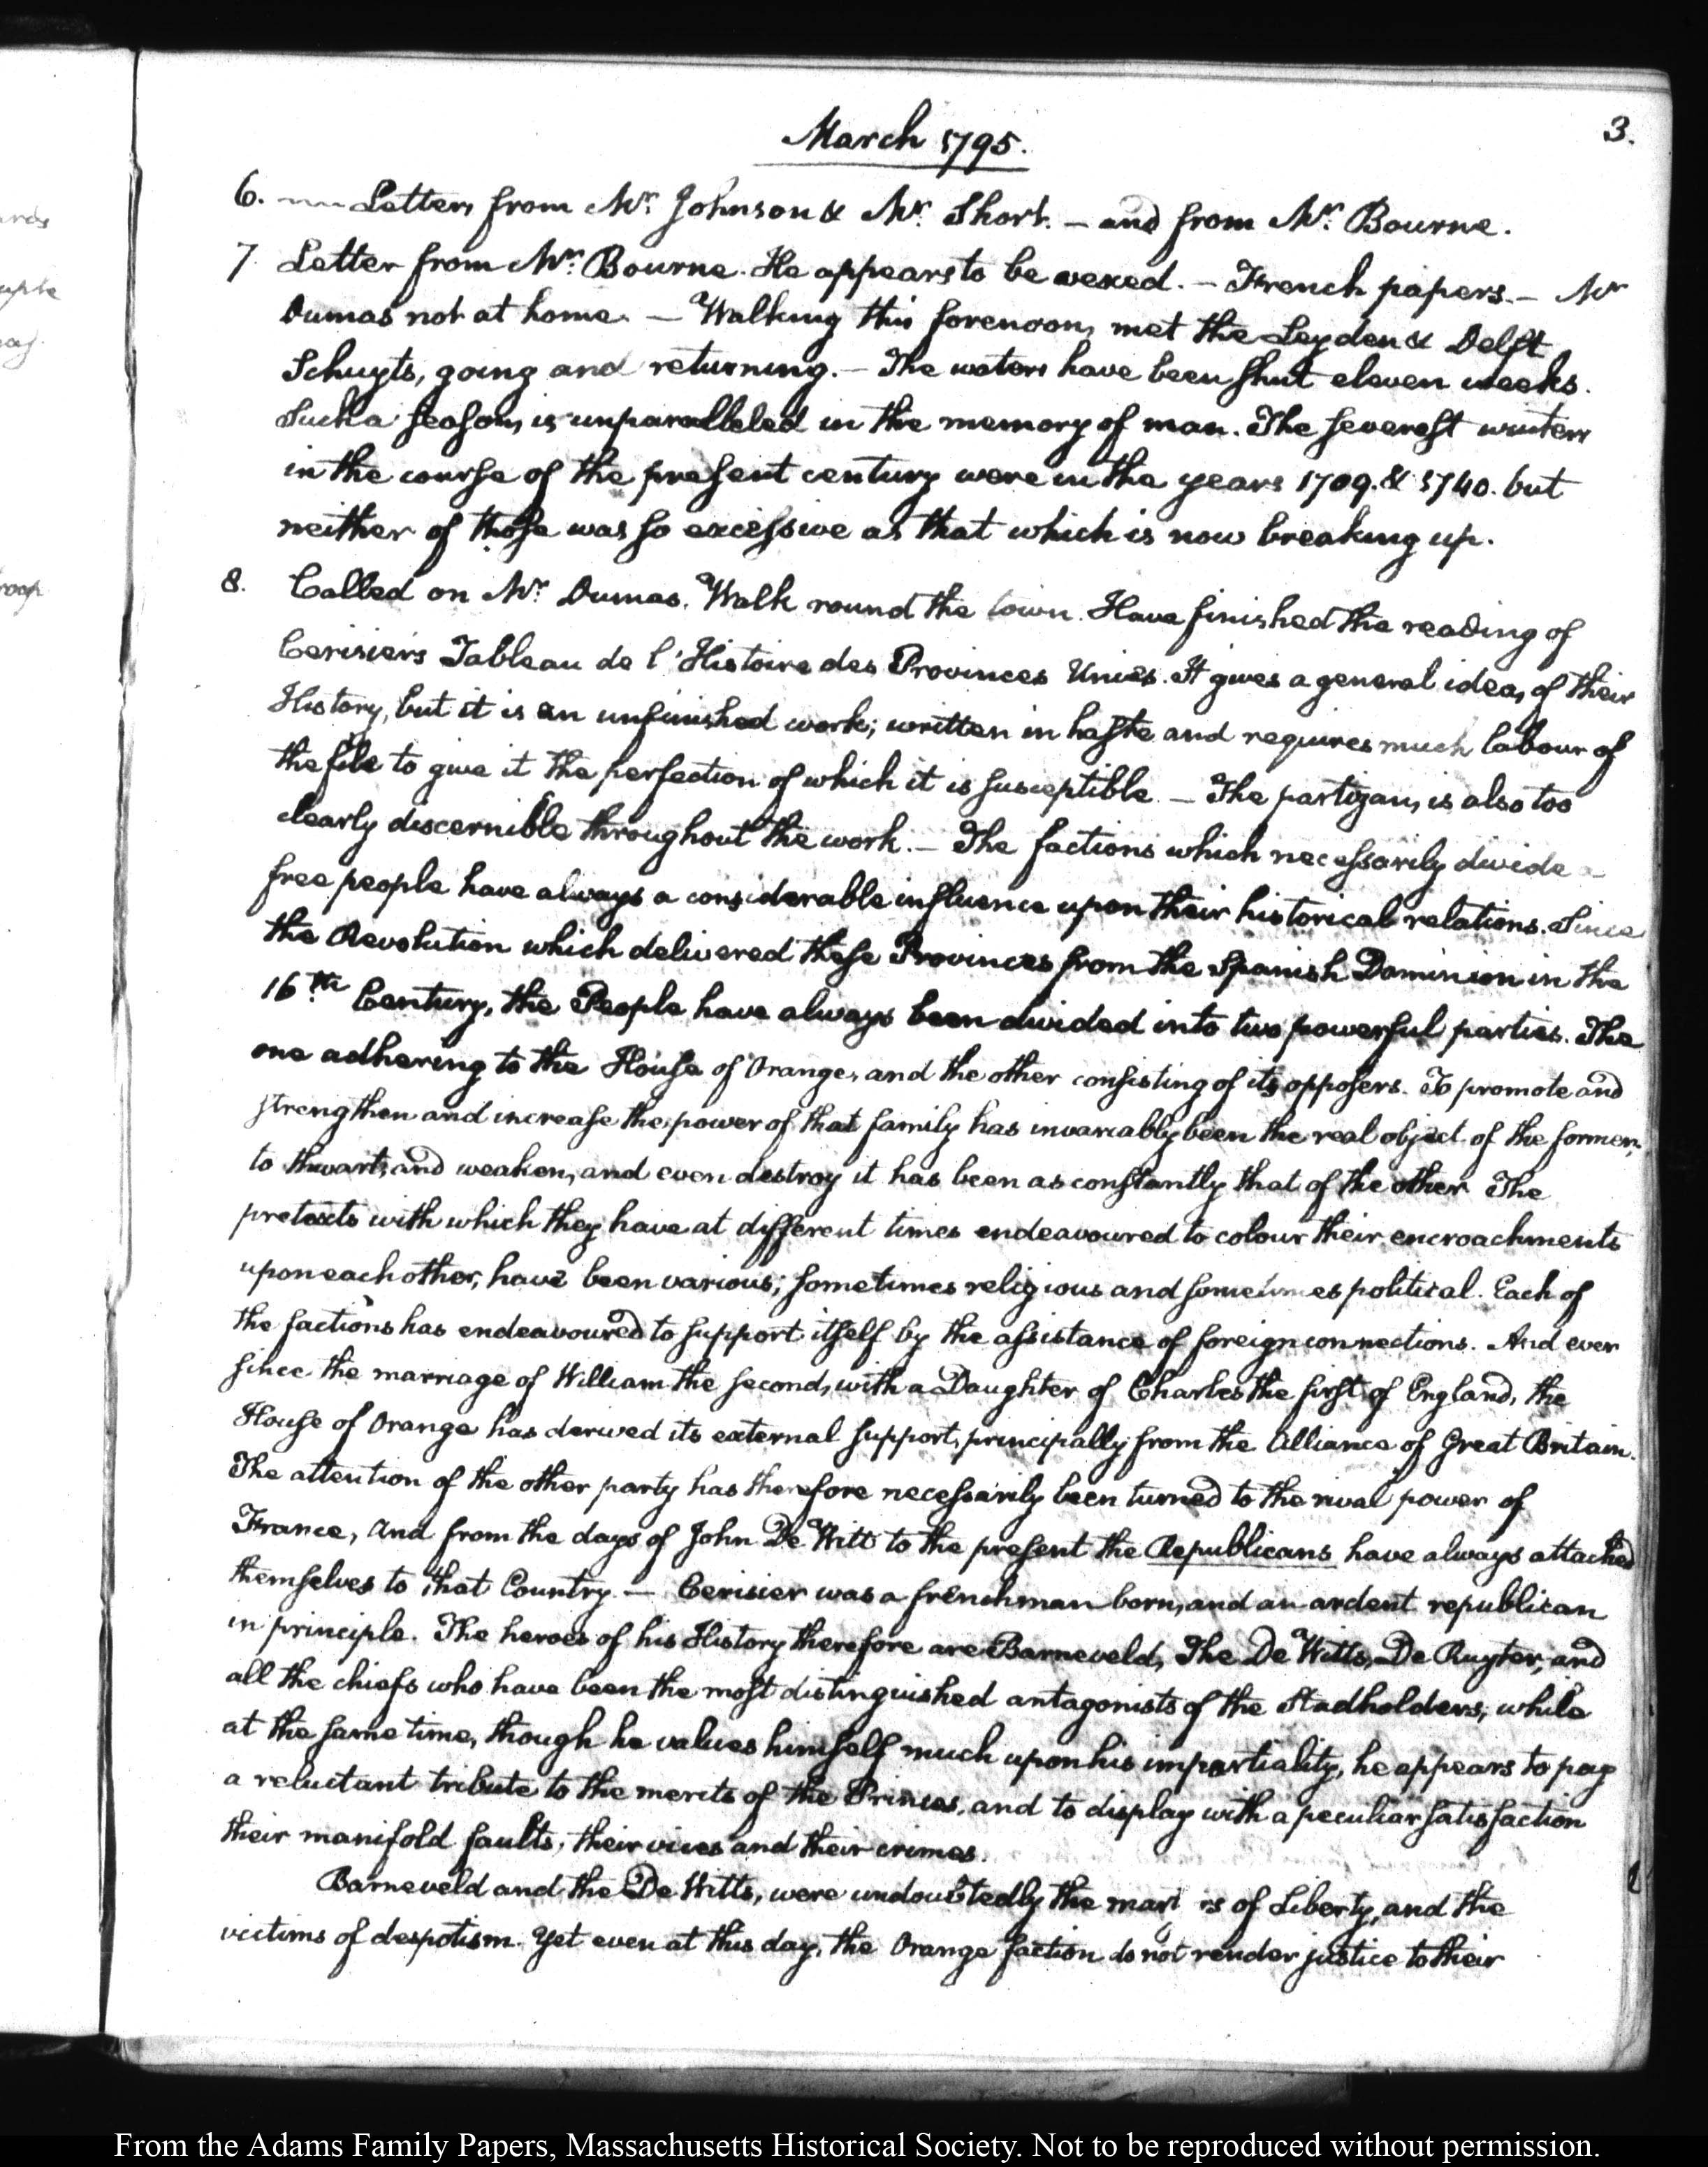 March 1795.
3.
6. Letters from Mr. Johnson & Mr. Short. — and from Mr. Bourne.
7. Letter from Mr. Bourne. He appears to be vexed. — French papers. — Mr
Dumas not at home. — Walking this forenoon, met the Leyden & Delft
Schuyts, going and returning. — The waters have been shut eleven weeks.
Such a season, is unparalleled in the memory of man. The severest winters
in the course of the present century were in the years 1709. & 1740. but
neither of those was so excessive as that which is now breaking up.
8. Called on Mr. Dumas. Walk round the town. Have finished the reading of
Cerisier's Tableau de l'Histoire des Provinces Unies. It gives a general idea, of their
History, but it is an unfinished work; written in haste and requires much labour of
the file to give it the perfection of which it is susceptible — The partizan, is also too
clearly discernible throughout the work. — The factions which necessarily divide a
free people have always a considerable influence upon their historical relations. Since
the Revolution which delivered these Provinces from the Spanish Dominion in the
16th. Century, the People have always been divided into two powerful parties. The
one adhering to the House of Orange, and the other consisting of its opposers. To promote and
strengthen and increase the power of that family has invariably been the real object of the former;
to thwart, and weaken, and even destroy it has been as constantly that of the other The
pretexts with which they have at different times endeavoured to colour their encroachments
upon each other, have been various; sometimes religious and sometimes political. Each of
the factions has endeavoured to support itself by the assistance of foreign connections. And ever
since the marriage of William the second, with a Daughter of Charles the first of England, the
House of Orange has derived its external support, principally from the Alliance of Great Britain.
The attention of the other party has therefore necessarily been turned to the rival power of
France, and from the days of John De Witt to the present the Republicans have always attached
themselves to that Country. — Cerisier was a frenchman born, and an ardent republican
in principle. The heroes of his History therefore are Barneveld, The De Witts, De Ruyter, and
all the chiefs who have been the most distinguished antagonists of the Stadholders; while
at the same time, though he values himself much upon his impartiality, he appears to pay
a reluctant tribute to the merits of the Princes, and to display with a peculiar satisfaction
their manifold faults, their vices and their crimes.
Barneveld and the De Witts, were undoubtedly the martyrs of Liberty, and the
victims of despotism. Yet even at this day, the Orange faction do not render justice to their
From the Adams Family Papers, Massachusetts Historical Society. Not to be reproduced without permission.